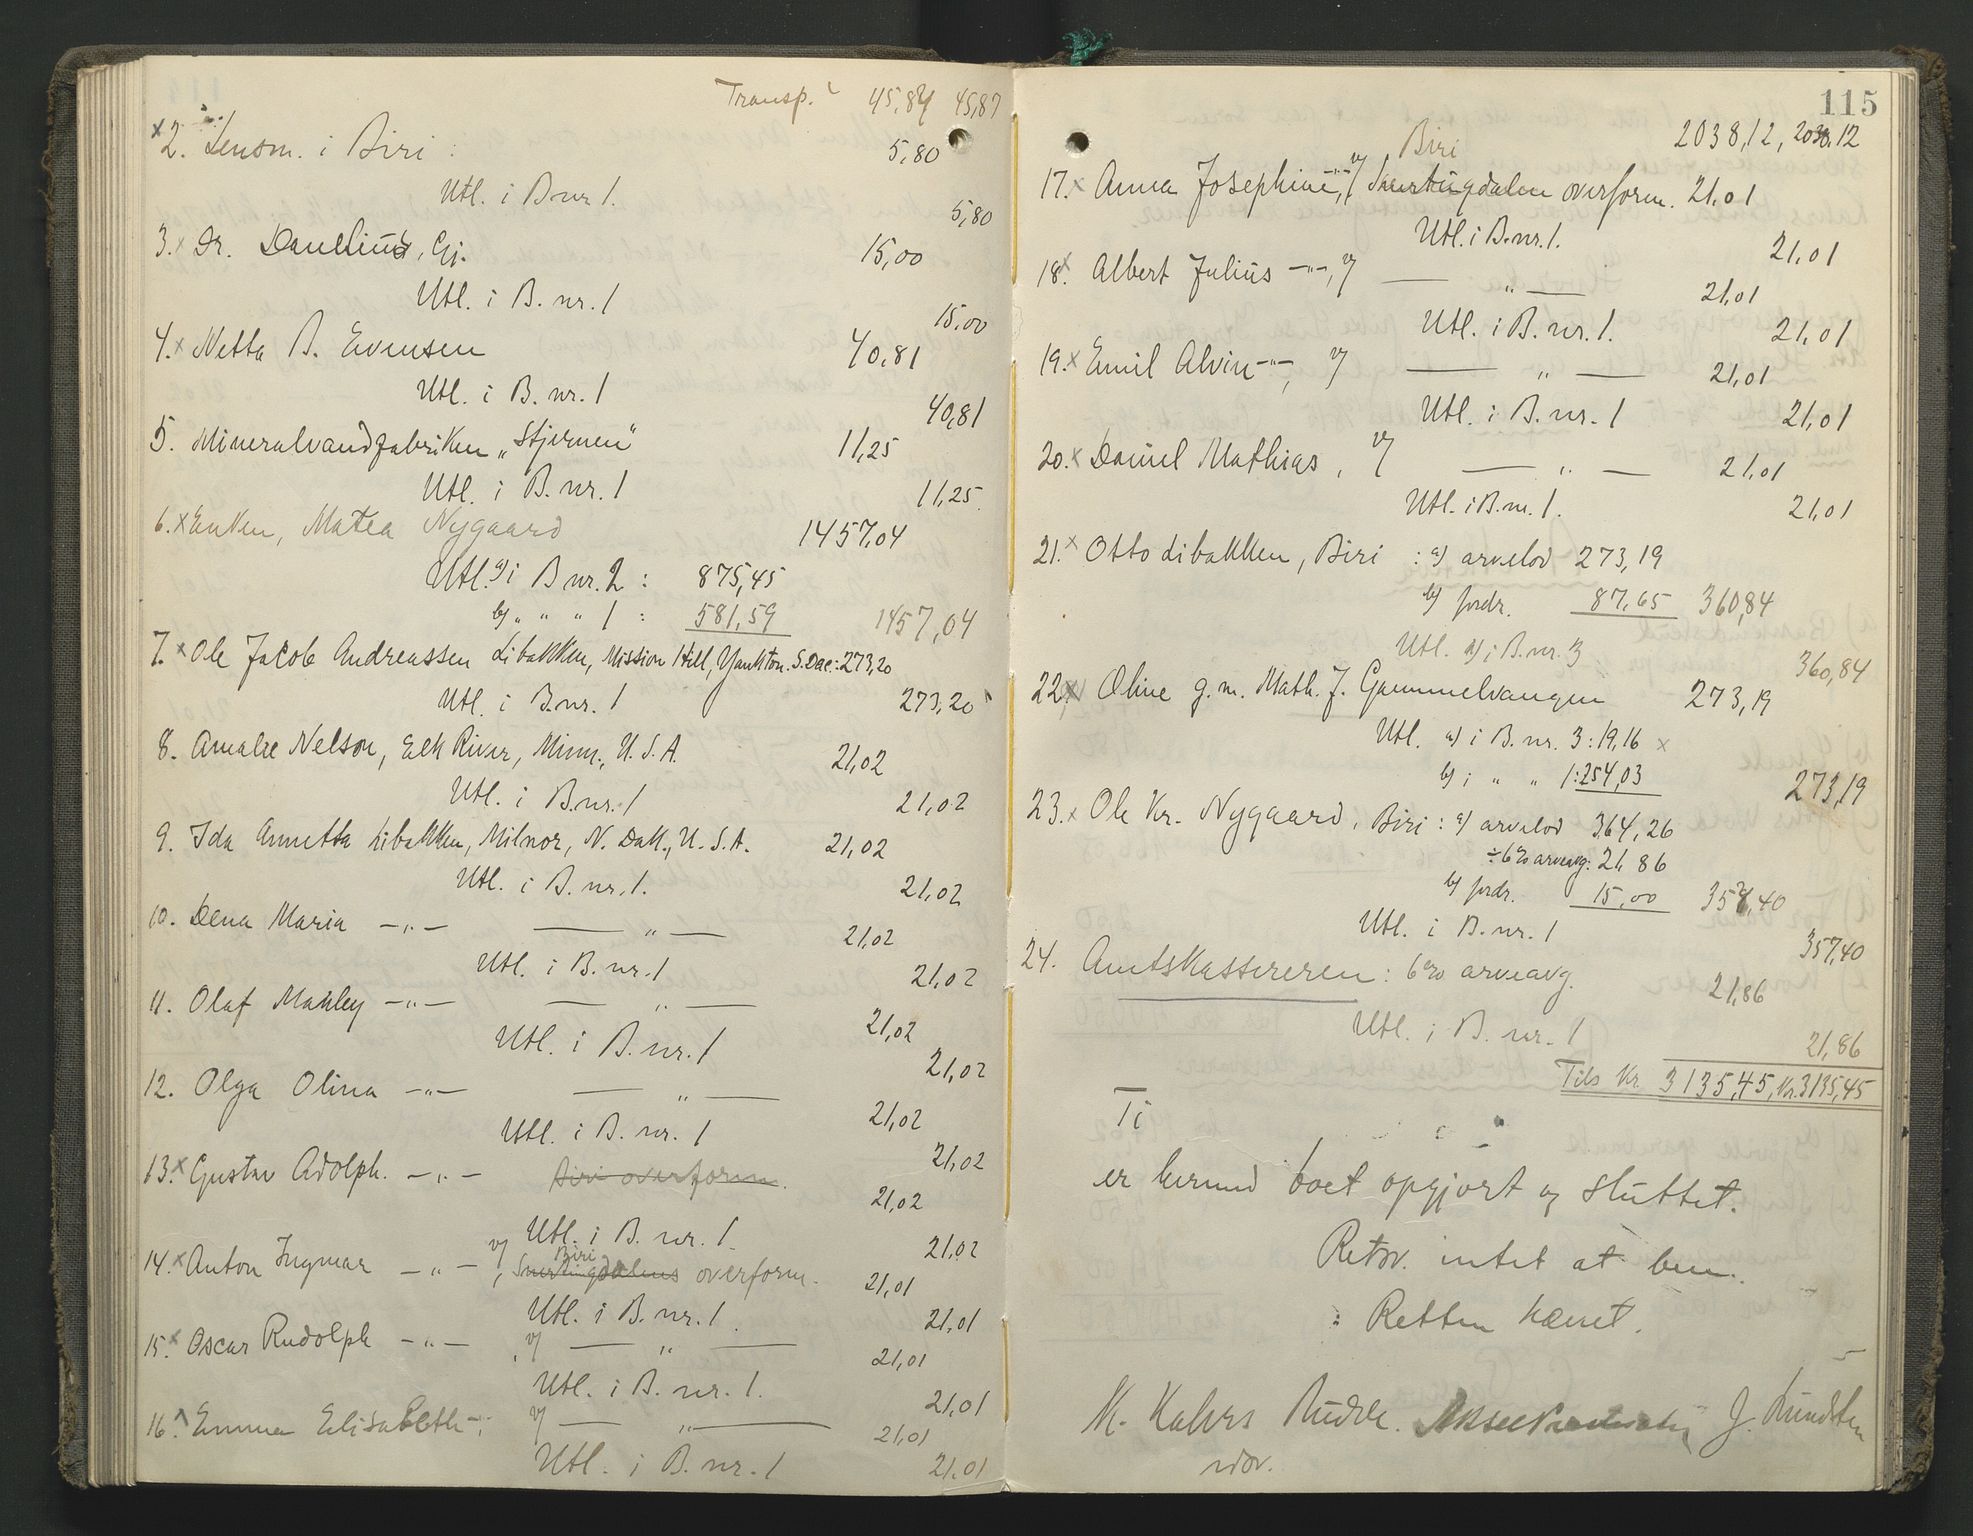 Transp. 45,87 45,87
x2. Lensm. i Biri : 5,80
Utl. i B nr 1. 5,80
3.x Dr. Danelius, Gj. 15,00
Utl. i B. nr. 1 15,00
4.x Netta B. Evensen 40,81
Utl. i B. nr. 1 40,81
5. Mineralvandfabriken „Stjernen" 11,25
Utl. i B. nr. 1 11,25
6.x Enken, Matea Nygaard 1457,04
Utl. a) i B nr. 2 : 875,45
b) „ „ „ 1 : 581,59 1457,04
7.x Ole Jacob Andreassen Libakken, Mission Hill, Yankton. S. Dac: 273,20
Utl. i B. nr. 1 273,20
8. Amalie Nelson, Elk River, Minn., U.S.A. 21,02
Utl. i B. nr. 1 21,02
9. Ida Annetta Libakken, Milnor, N. Dak., U.S.A. 21,02
Utl. i B. nr. 1. 21,02
10. Dena Maria —„— — „ — 21,02
Utl. i B. nr. 1 21,02
11. Olaf Manley —„— — „ — 21,02
Utl. i B. nr. 1 21,02
12. Olga Olina —„— — „ — 21,02
Utl. i B. nr. 1 21,02
13.x Gustav Adolph. —„— Biri overform. 21,02
Utl. i B. nr. 1. 21,02
14.x Anton Ingmar —„— v/ Biri
Snertingdalens overform. 21,01
Utl. i B. nr. 1. 21,01
15.x Oscar Rudolph —„—, v/ — „ — 21,01
Utl. i B. nr. 1. 21,01
16. Emma Elisabeth —„— v/ — „ — 21,01
Utl. i B. nr. 1 21,01
115
2038,12, 2038,12
Biri
17.x Anna Josephine, —„— v/ Snertingdalen overform. 21,01
Utl. i B. nr. 1. 21,01
18.x Albert Julius —„—, v/ — „ — 21,01
Utl. i B. nr. 1. 21,01
19.x Emil Alvin —„—, v/ — „ — 21,01
Utl. i B. nr. 1 21,01
20.x Daniel Mathias, v/ — „ — 21,01
Utl. i B. nr. 1. 21,01
21.x Otto Libakken, Biri : a) arvelod 273,19
b) fordr. 87,65 360,84
Utl. a) i B. nr. 3 360,84
22.x Oline g. m. Math. J. Gammelvangen 273,19
Utl. a) i B. nr. 3 : 19,16 x
b) i „ „ 1 : 254,03 273,19
23.x Ole Kr. Nygaard, Biri : a) arvelod 364,26
÷ 6 % arveavg: 21,86
b) fordr. 15,00 357,40
Utl. i B. nr. 1 357,40
24. Amtskassereren : 6 % arveavg. 21,86
Utl. i B. nr. 1 21,86
Tils Kr. 3135,45, Kr. 3135,45
Ti
er herned boet opgjort og sluttet.
Retsv. intet at bem.
Retten hævet.
M. Kahrs Budde. J. Lundsten